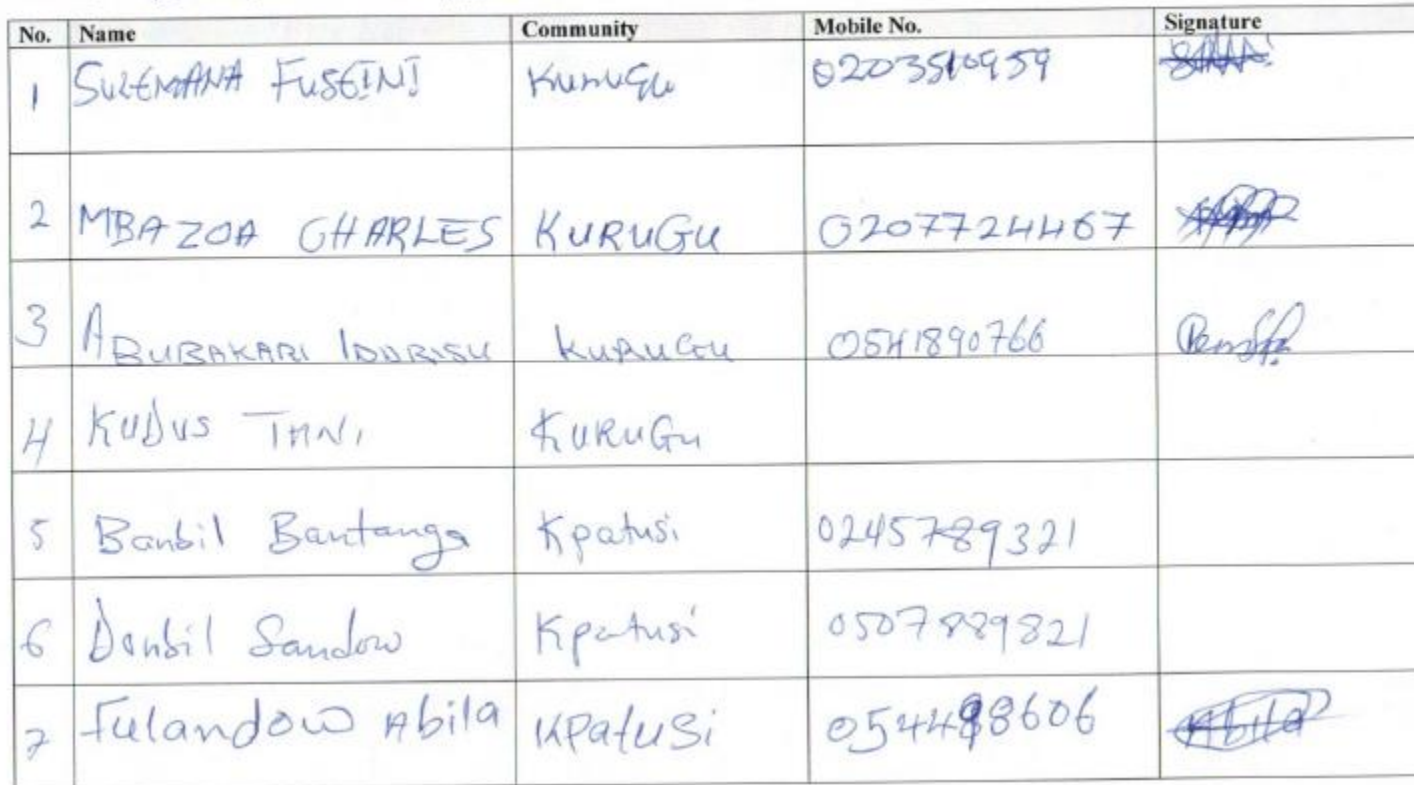 No. Name Community Mobile No. Signature
1 SULEMANA FUSEINI KuruGu 0203510959
2 MBAZOA CHARLES KURUGU 0207724467
3 ABUBAKARI IDDRISU KURUGU 0541890766
4 KUDUS TANI KURUGu
5 Banbil Bantanga Kpatusi 0245789321
6 Donbil Sandow Kpatusi 0507889821
7 Fulandow Abila KPatuSi Abila